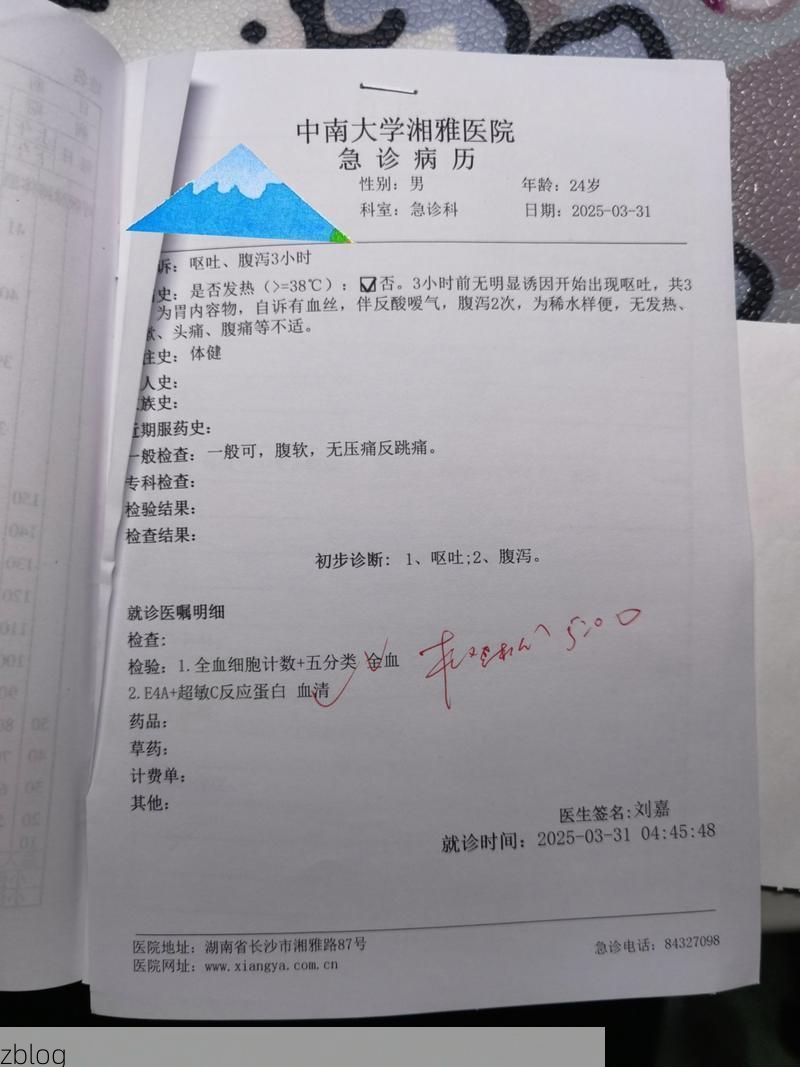 中南大学湘雅医院
急诊病历
性别：男 年龄：24岁
科室：急诊科 日期：2025-03-31
诉：呕吐、腹泻3小时
史：是否发热（>=38℃）：☑否。3小时前无明显诱因开始出现呕吐，共3
为胃内容物，自诉有血丝，伴反酸嗳气，腹泻2次，为稀水样便，无发热、
、头痛、腹痛等不适。
往史：体健
人史：
族史：
近期服药史：
一般检查：一般可，腹软，无压痛反跳痛。
专科检查：
检验结果：
检查结果：
初步诊断：1、呕吐;2、腹泻。
就诊医嘱明细
检查：
检验：1.全血细胞计数+五分类 全血
5:00
2.E4A+超敏C反应蛋白 血清
药品：
草药：
计费单：
其他：
医生签名:刘嘉
就诊时间：2025-03-31 04:45:48
医院地址：湖南省长沙市湘雅路87号 急诊电话：84327098
医院网址：www.xiangya.com.cn
zblog